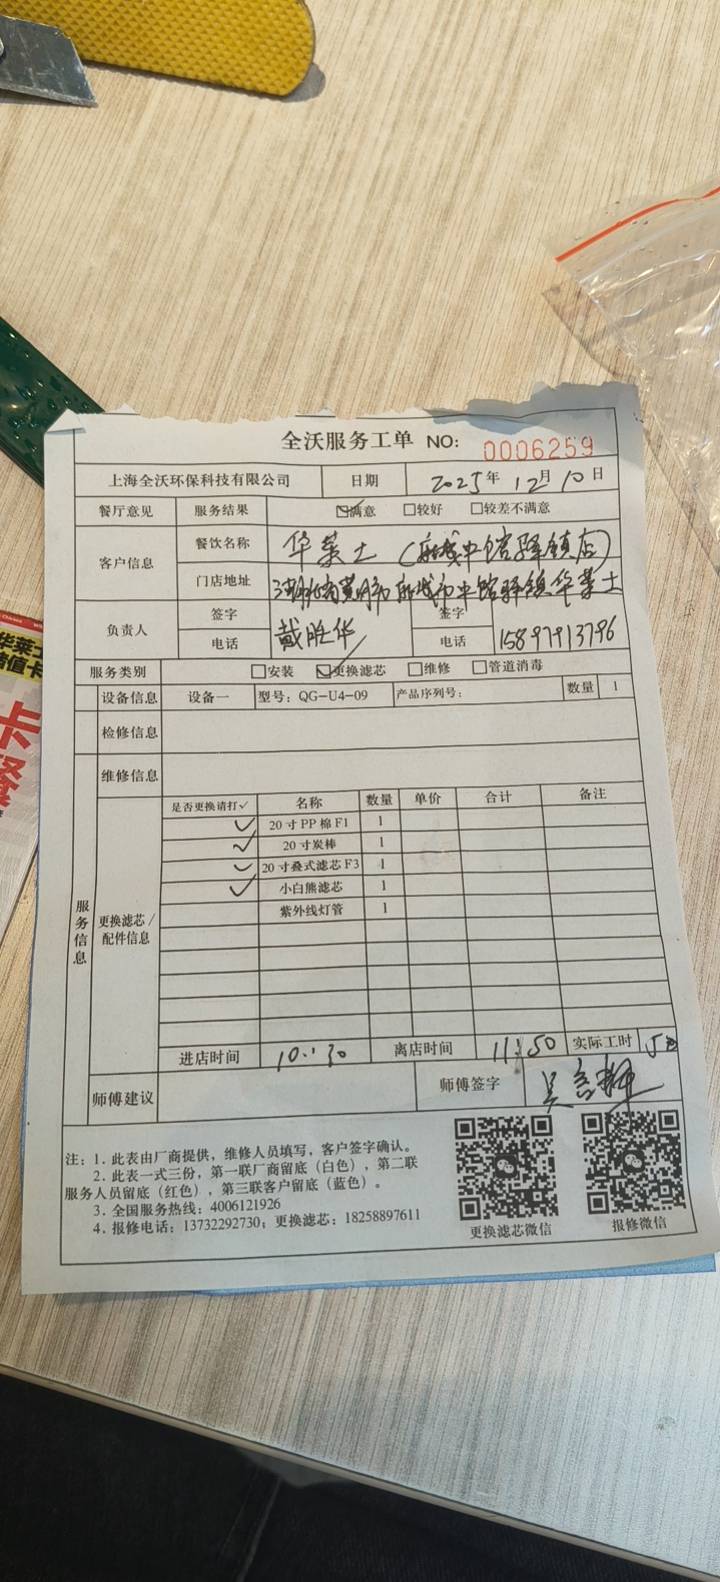 全沃服务工单 NO: 0006259
上海全沃环保科技有限公司 日期 2025年 12月 10日
餐厅意见 服务结果 ☑满意 □较好 □较差不满意
客户信息 餐饮名称 华莱士( 驿镇店)
门店地址 湖北省 市 驿镇华莱士
负责人 签字 戴胜华 签字
电话 电话 15897913796
服务类别 □安装 ☑更换滤芯 □维修 □管道消毒
服务信息
设备信息 设备一 型号:QG-U4-09 产品序列号: 数量 1
检修信息
维修信息
更换滤芯/配件信息
是否更换请打✓ 名称 数量 单价 合计 备注
✓ 20寸PP棉F1 1
✓ 20寸炭棒 1
✓ 20寸叠式滤芯F3 1
✓ 小白熊滤芯 1
紫外线灯管 1
进店时间 10:30 离店时间 11:50 实际工时
师傅建议 师傅签字
注:1. 此表由厂商提供,维修人员填写,客户签字确认。
2. 此表一式三份,第一联厂商留底(白色),第二联
服务人员留底(红色),第三联客户留底(蓝色)。
3. 全国服务热线:4006121926
4. 报修电话:13732292730;更换滤芯:18258897611
更换滤芯微信 报修微信
华莱士
值卡
卡